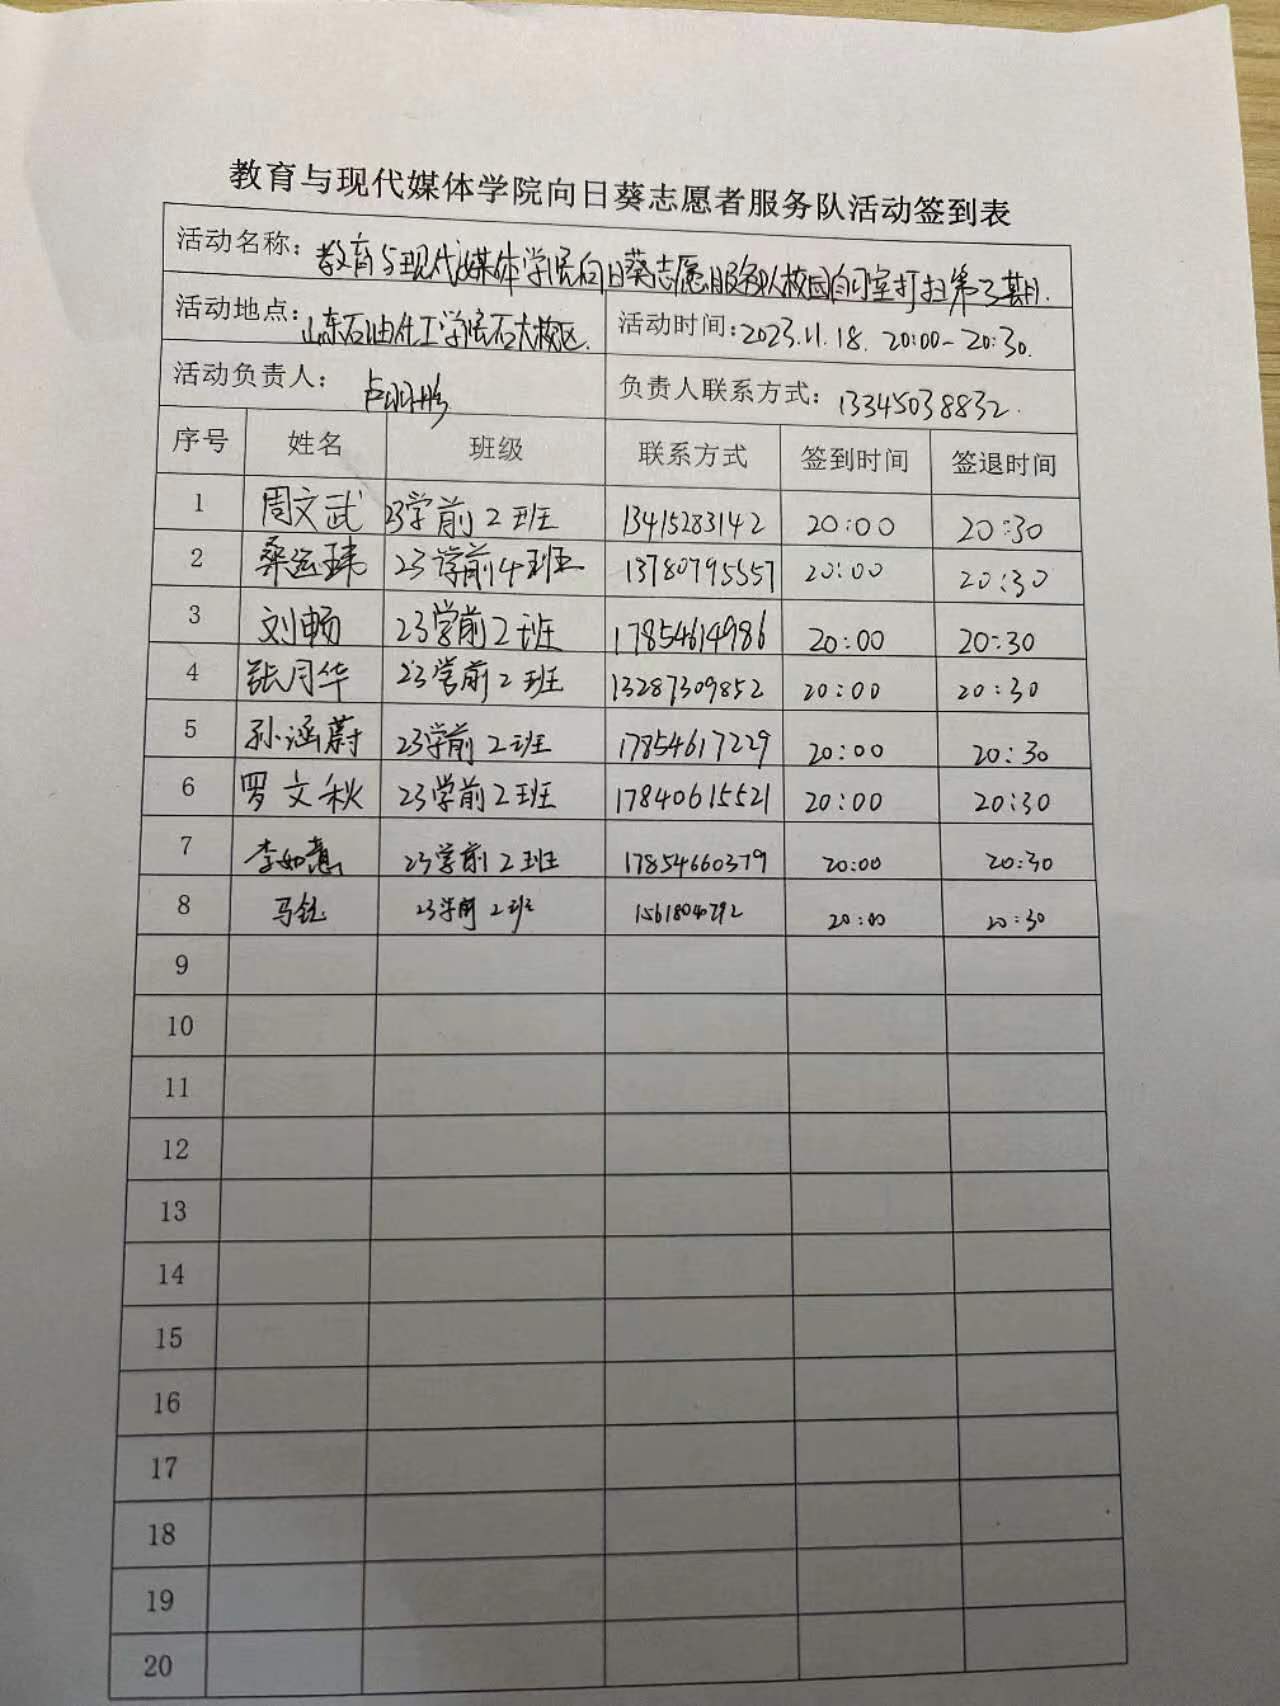 教育与现代媒体学院向日葵志愿者服务队活动签到表
活动名称：教育与现代媒体学院向日葵志愿服务队校园自习室打扫第3期.
活动地点：山东石油化工学院石大校区. 活动时间：2023.11.18. 20:00-20:30.
活动负责人： 负责人联系方式：13345038832.
序号 姓名 班级 联系方式 签到时间 签退时间
1 周文武 23学前2班 13415283142 20:00 20:30
2 桑运玮 23学前4班 13780795557 20:00 20:30
3 刘畅 23学前2班 17854614986 20:00 20:30
4 张月华 23学前2班 13287309852 20:00 20:30
5 孙涵蔚 23学前2班 17854617229 20:00 20:30
6 罗文秋 23学前2班 17840615521 20:00 20:30
7 李如意 23学前2班 17854660379 20:00 20:30
8 马钰 23学前2班 20:00 20:30
9
10
11
12
13
14
15
16
17
18
19
20